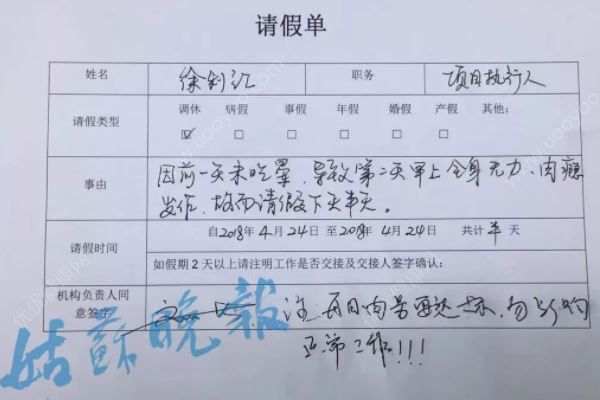 请假单
姓名 徐利江 职务 项目执行人
请假类型 调休 病假 事假 年假 婚假 产假 其他：
☑ □ □ □ □ □
事由 因前一天未吃荤，导致第二天早上全身无力、肉瘾
发作，故而请假下午半天。
请假时间 自2018年4月24日 至2018年4月24日 共计半天
如假期2天以上请注明工作是否交接及交接人签字确认：
机构负责人同
意签字 注：每日肉量要达标，勿影响
正常工作!!!
姑苏晚报